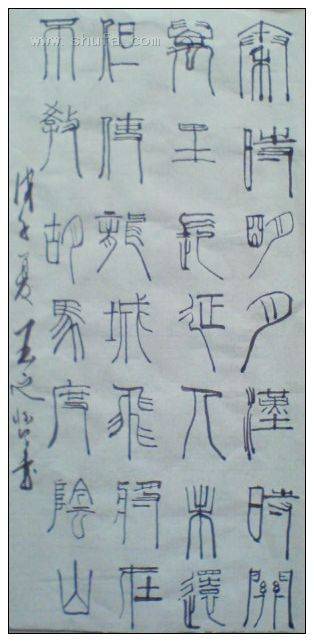 秦時明月漢時關
萬里長征人未還
但使龍城飛將在
不教胡馬度陰山
戊子夏王
www.shufa.com